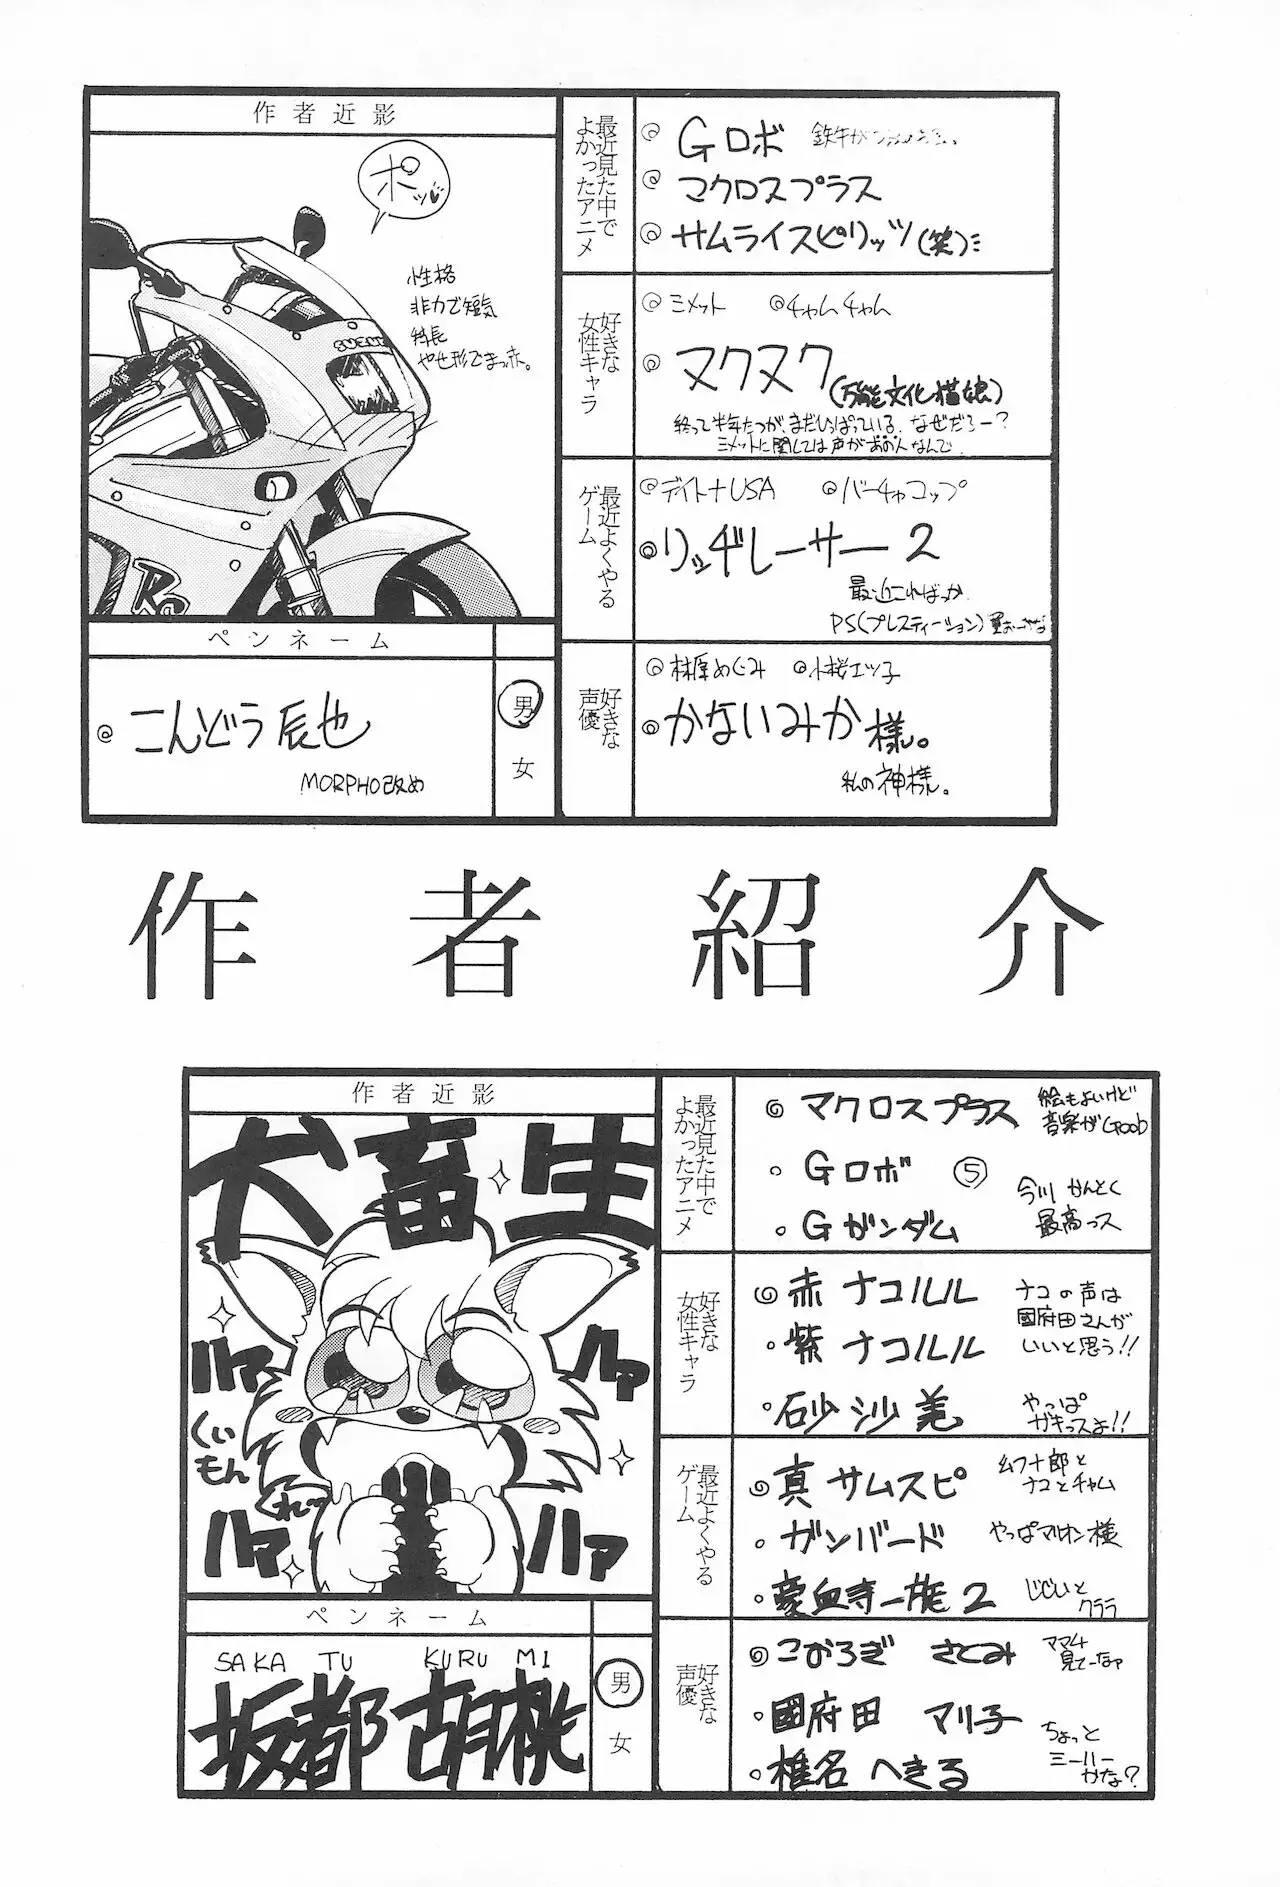 作者近影
ポッ
性格
非力で短気
特長
やせ形でまった。
ペンネーム
こんどう辰也
MORPHO改め
男
女
最近見た中で
よかったアニメ
Gロボ
マクロスプラス
サムライスピリッツ(笑)
好きな
女性キャラ
ミメット チャムチャム
ヌクヌク(万能文化猫娘)
終って半年たつが、まだひっぱっている。なぜだろー?
ミメットに関しては声があの人なんで
最近よくやる
ゲーム
デイトナUSA バーチャコップ
リッヂレーサー2
最近こればっか
PS(プレスティーション)
好きな
声優
林原めぐみ 小桜エツ子
かないみか様。
私の神様。
作者紹介
作者近影
犬畜生
ハァ
ハァ
くいもんくれーっ
ハァ
ハァ
ペンネーム
SAKA TU KURU MI
坂都胡桃
男
女
最近見た中で
よかったアニメ
マクロスプラス 絵もよいけど
音楽がGOOD
Gロボ ⑤
Gガンダム 今川かんとく
最高っス
好きな
女性キャラ
赤ナコルル
紫ナコルル
ナコの声は
國府田さんが
いいと思う!!
砂沙美 やっぱ
ガキっスよ!!
最近よくやる
ゲーム
真サムスピ 幻十郎と
ナコとチャム
ガンバード やっぱマリオン様
豪血寺一族2 じじいと
クララ
好きな
声優
こおろぎさとみ ママ4
見てーなァ
國府田マリ子
椎名へきる ちょっと
ミーハー
かな?